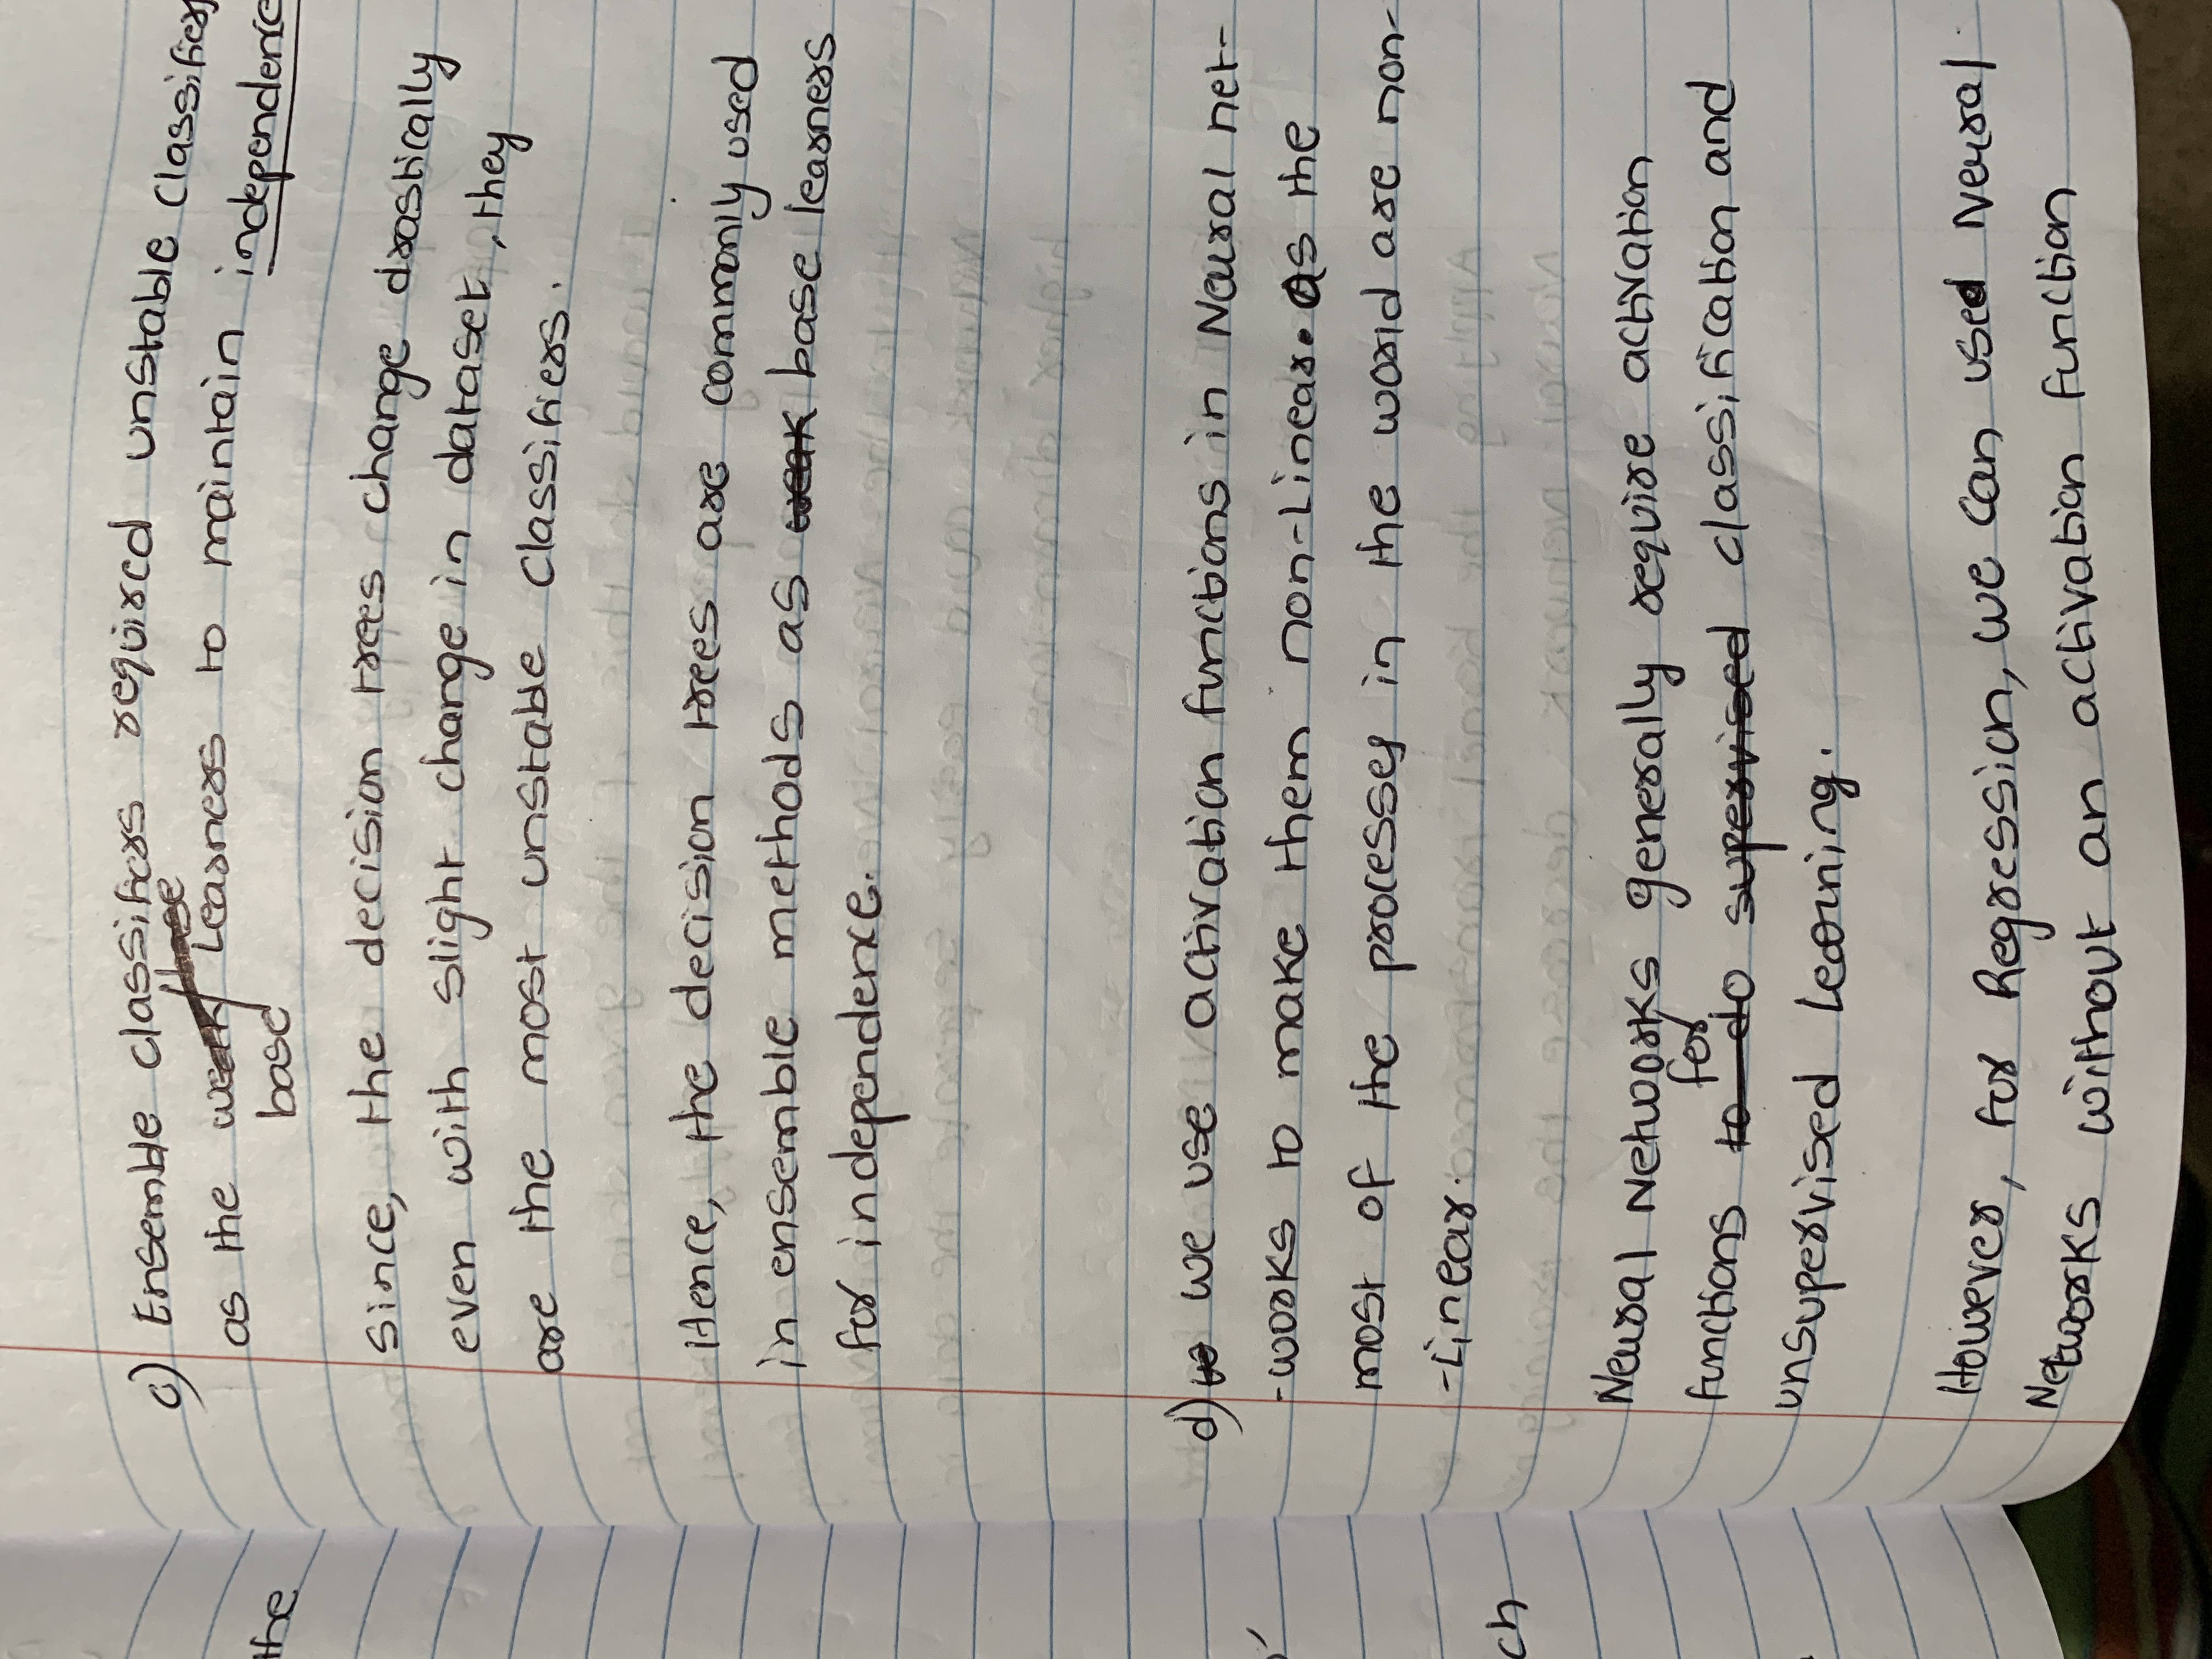 c) Ensemble classifiers required unstable classifiers
as the weak/ base Learners to maintain independence
base
since, the decision trees change drastically
even with slight change in dataset, they
are the most unstable classifiers.
Hence, the decision trees are commonly used
in ensemble methods as weak base learners
for independence.
d) we we use activation functions in Neural net-
-works to make them non-Linear. As the
most of the processes in the world are non-
-Linear.
Neural Networks generally require activation
for
functions to do supervised classification and
unsupervised Learning.
However, for Regression, we can used Neural
Networks without an activation function
the
ch